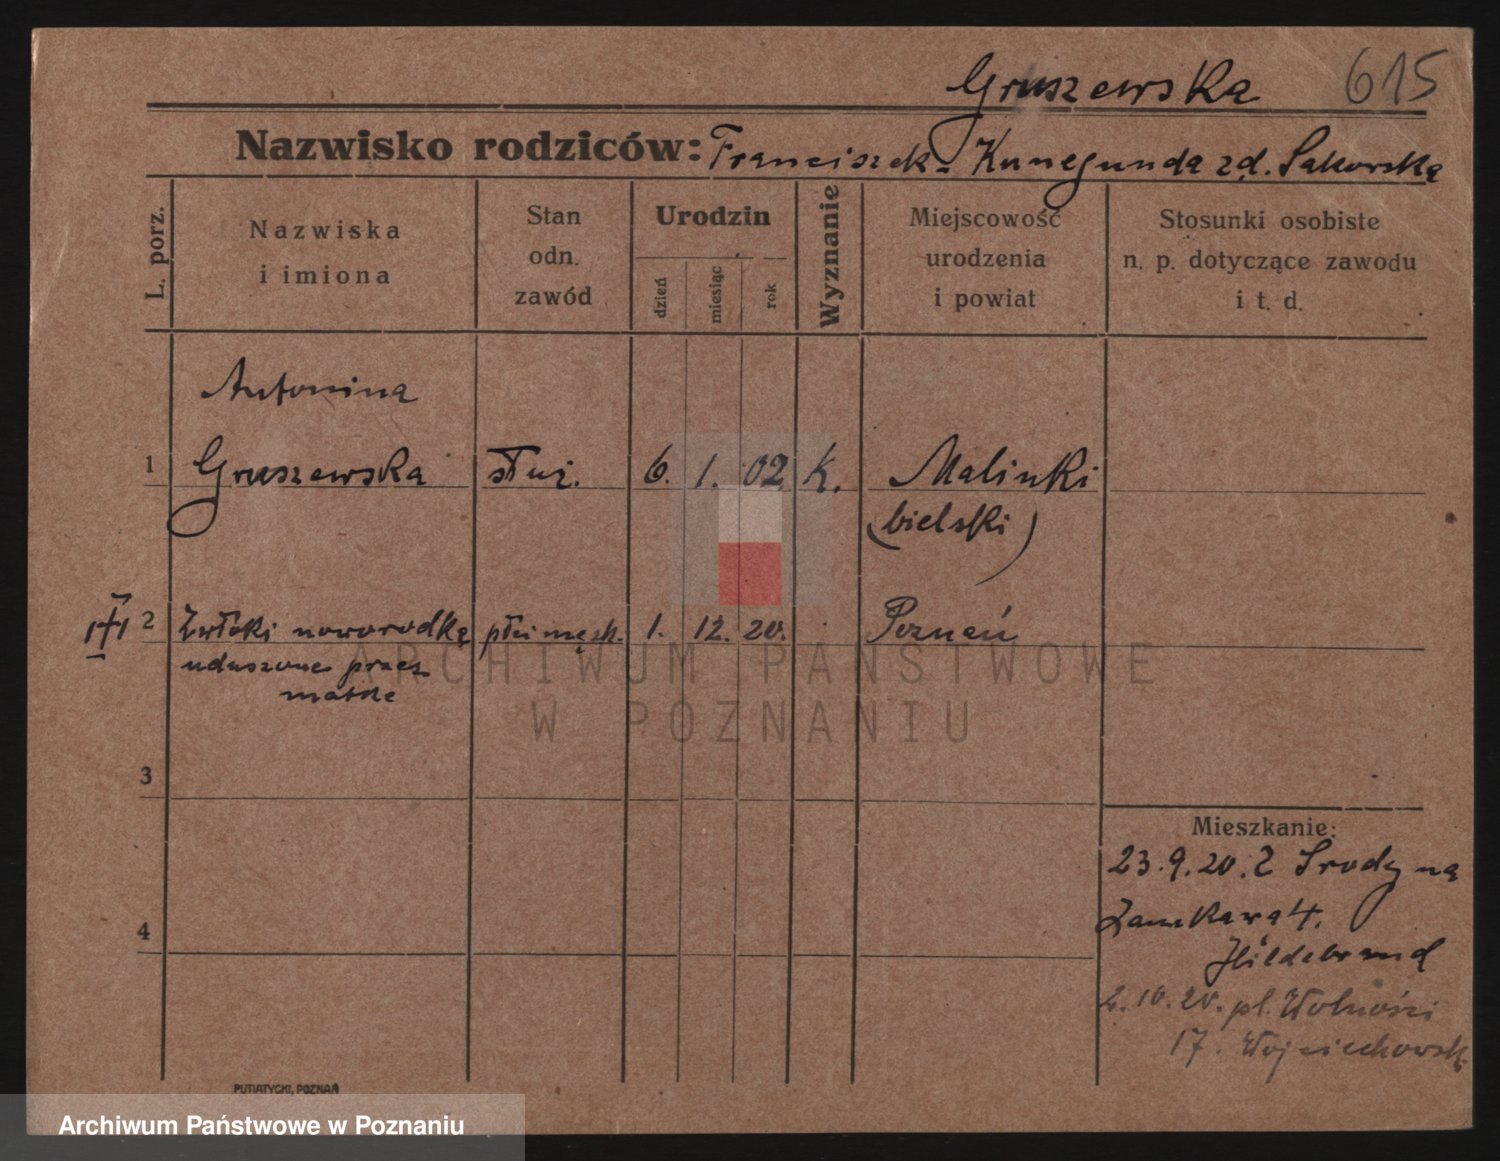 Gruszewska 615
Nazwisko rodziców: Franciszek - Kunegunda zd. Sakowska
L. porz.
Nazwiska
i imiona
Stan
odn.
zawód
Urodzin
dzień
miesiąc
rok
Wyznanie
Miejscowość
urodzenia
i powiat
Stosunki osobiste
n. p. dotyczące zawodu
i t. d.
Antonina
1 Gruszewska służ. 6. 1. 02. k. Malinki
(bielski)
2 Zwłoki noworodka płci męsk. 1. 12. 20. Poznań
uduszone przez
matkę
3
Mieszkanie:
23.9.20. Z Środy na
Zamkowa 4.
4
Hildebrand
2.10.20. pl. Wolności
17. Wojciechowsk
PUTIATYCKI, POZNAŃ
ARCHIWUM PAŃSTWOWE
W POZNANIU
Archiwum Państwowe w Poznaniu